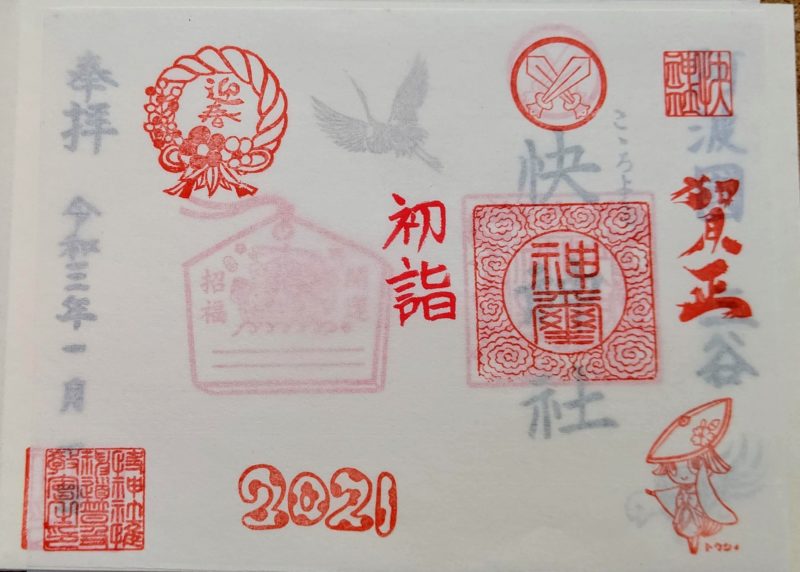 快神社
波國
谷
賀正
こころよき
快
社
神璽
初詣
迎春
開運
招福
2021
奉拝
令和三年一月